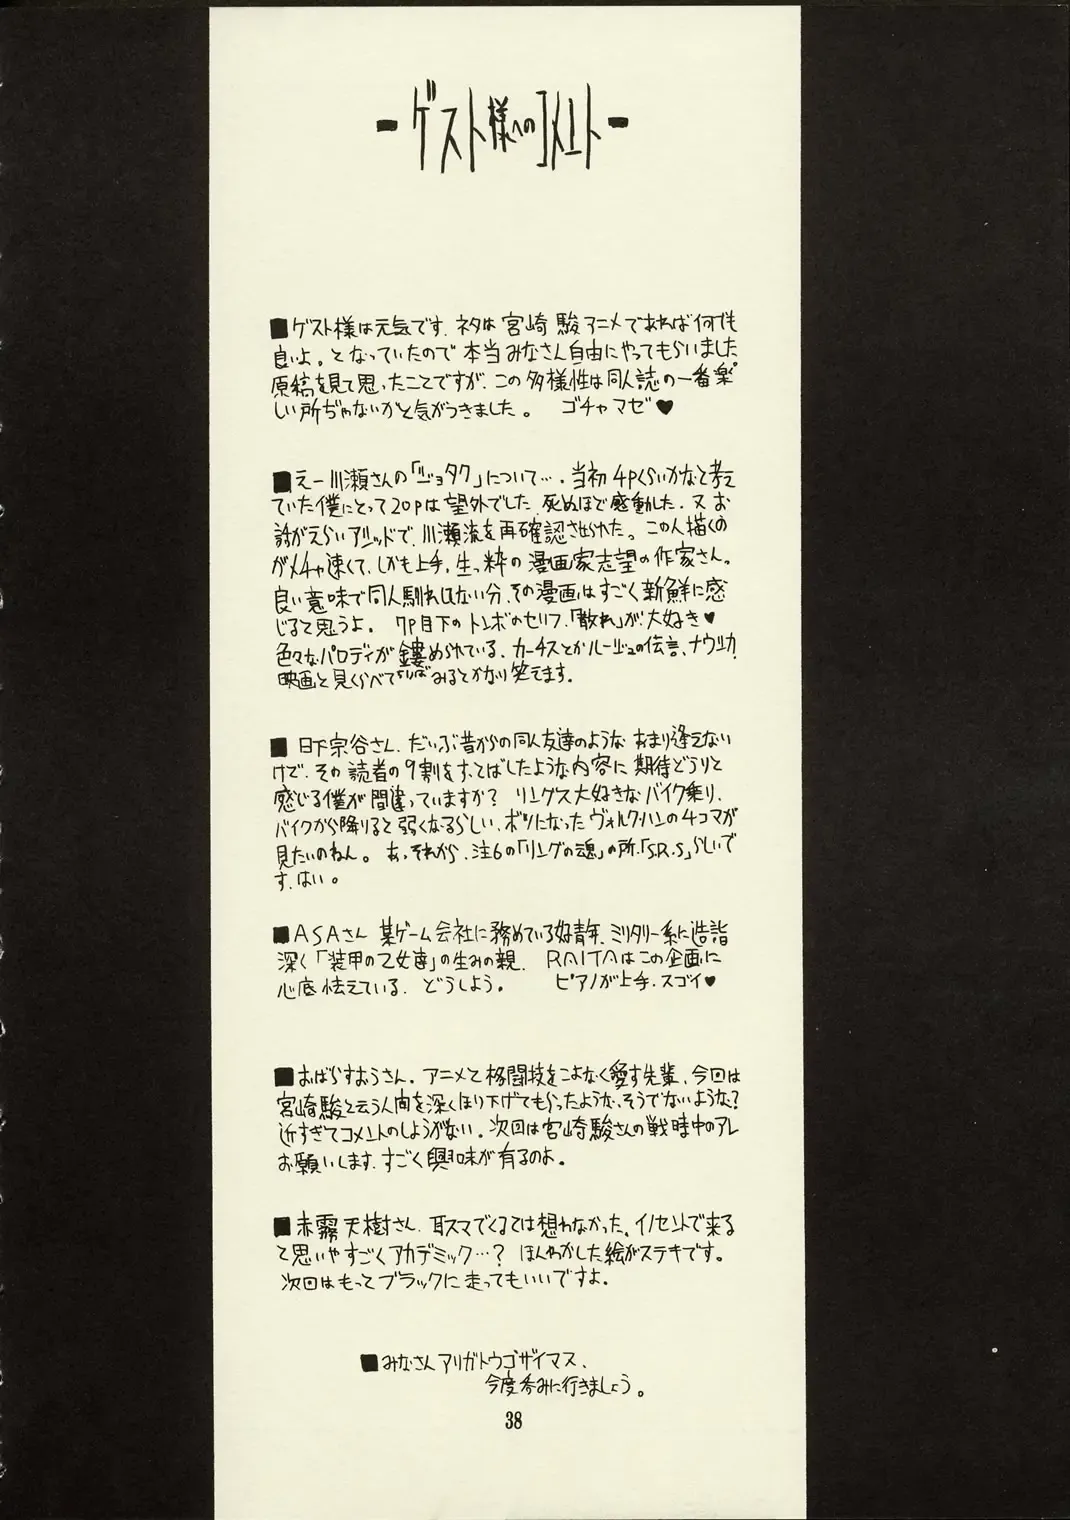 -ゲスト様へのコメント-
■ゲスト様は元気です。ネタは宮崎駿アニメであれば何でも
良いよ。となっていたので本当みなさん自由にやってもらいました。
原稿を見て思ったことですが、この多様性は同人誌の一番楽
しい所ぢゃないかと気がつきました。 ゴチャマゼ♥
■えー川瀬さんの「ジョタク」について…。当初4Pくらいかなと考え
ていた僕にとって20Pは望外でした。死ぬほど感動した。又お
話がえらいアシッドで、川瀬流を再確認させられた。この人描くの
がメチャ速くて、しかも上手。生っ粋の漫画家志望の作家さん。
良い意味で同人馴れしてない分、その漫画はすごく新鮮に感
じると思うよ。 7P目下のトンボのセリフ、「散れ」が大好き♥
色々なパロディが鏤められている、カーチスとかルージュの伝言、ナウシカ。
映画と見くらべてみるとかなり笑えます。
■日下宗谷さん、だいぶ昔からの同人友達のような あまり逢えない
けど、その読者の9割をすっとばしたような内容に期待どうりと
感じる僕が間違っていますか? リングス大好きなバイク乗り、
バイクから降りると弱くなるらしい、ボツになったヴォルク・ハンの4コマが
見たいのねん。 あ、それから、注6の「リングの魂」の所、「S.R.S」らしいで
す、はい。
■ASAさん 某ゲーム会社に務めている好青年、ミリタリー系に造詣
深く「装甲の乙女達」の生みの親。 RAITAはこの企画に
心底怯えている。どうしよう。 ピアノが上手。スゴイ♥
■おばらすおうさん。アニメと格闘技をこよなく愛す先輩、今回は
宮崎駿と云う人間を深くほり下げてもらったような、そうでないような?
近すぎてコメントのしようがない。次回は宮崎駿さんの戦時中のアレ
お願いします、すごく興味が有るのよ。
■赤霧天樹さん、耳スマでくるとは想わなかった。イノセントで来る
と思いやすごくアカデミック…? ほんわかした絵がステキです。
次回はもってブラックに走ってもいいですよ。
■みなさんアリガトウゴザイマス、
今度呑みに行きましょう。
38